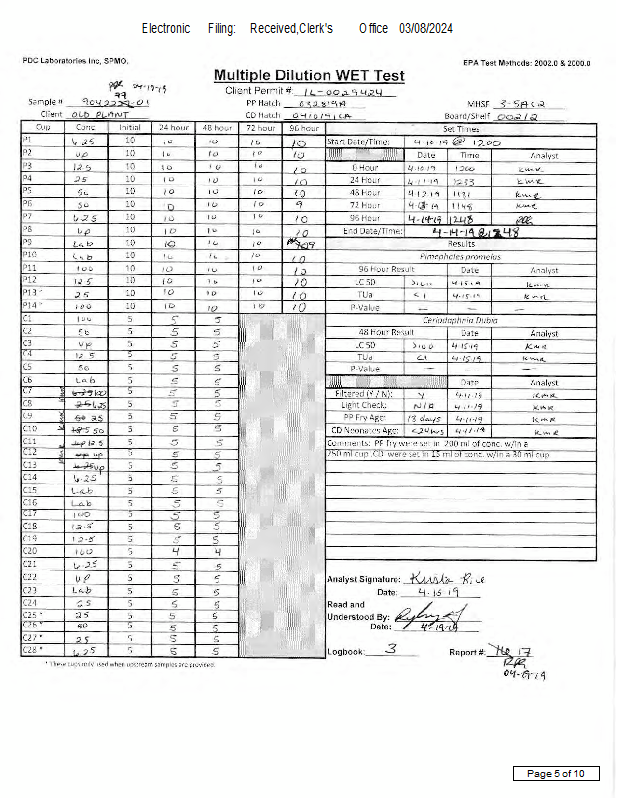 Electronic Filing: Received,Clerk's Office 03/08/2024
PDC Laboratories Inc, SPMO.
EPA Test Methods: 2002.0 & 2000.0
Multiple Dilution WET Test
Client Permit #: IL-0029424
Sample # 9042229-01 PP Hatch 032819A MHSF 3-SA(2
Client OLD PLANT CD Hatch 041019(CA Board/Shelf 002/2
Cup Conc Initial 24 hour 48 hour 72 hour 96 hour Set Times
P1 6.25 10 10 10 10 10 Start Date/Time: 4-10-19 @ 1200
P2 UP 10 10 10 10 10 Date Time Analyst
P3 12.5 10 10 10 10 10 0 Hour 4-10-19 1200 KMR
P4 25 10 10 10 10 10 24 Hour 4-11-19 1233 KMR
P5 50 10 10 10 10 10 48 Hour 4-12-19 1131 KMR
P6 50 10 10 10 10 9 72 Hour 1148 KMR
P7 6.25 10 10 10 10 10 96 Hour 4-14-19 1248
P8 UP 10 10 10 10 10 End Date/Time: 4-14-19 @ 1248
P9 Lab 10 10 10 10 9 Results
P10 Lab 10 10 10 10 10 Pimephales promelas
P11 100 10 10 10 10 10 96 Hour Result Date Analyst
P12 12.5 10 10 10 10 10 LC 50 >100 4-15-19 KMR
P13 * 25 10 10 10 10 10 TUa <1 4-15-19 KMR
P14 * 100 10 10 10 10 10 P-Value — — —
C1 100 5 5 5 Ceriodaphnia Dubia
C2 50 5 5 5 48 Hour Result Date Analyst
C3 UP 5 5 5 LC 50 >100 4-15-19 KMR
C4 12.5 5 5 5 TUa <1 4-15-19 KMR
C5 50 5 5 5 P-Value — — —
C6 Lab 5 5 5 Date Analyst
C7 100 5 5 5 Filtered (Y / N): Y 4-11-19 KMR
C8 6.25 5 5 5 Light Check: N/A 4-11-19 KMR
C9 50 25 5 5 5 PP Fry Age: 13 days 4-11-19 KMR
C10 50 5 5 5 CD Neonates Age: <24hrs 4-11-19 KMR
C11 UP 12.5 5 5 5 Comments: PF fry were set in 200 ml of conc. w/in a
C12 UP 5 5 5 250 ml cup .CD were set in 15 ml of conc. w/in a 30 ml cup
C13 6.25 UP 5 5 5
C14 6.25 5 5 5
C15 Lab 5 5 5
C16 Lab 5 5 5
C17 100 5 5 5
C18 12.5 5 5 5
C19 12.5 5 5 5
C20 100 5 4 4
C21 6.25 5 5 5
C22 UP 5 5 5 Analyst Signature: Krista Rice
C23 Lab 5 5 5 Date: 4-15-19
C24 5 5 5 Read and
C25 * 25 5 5 5 Understood By:
C26 * 50 5 5 5 Date: 4-19-19
C27 * 25 5 5 5
C28 * 6.25 5 5 5 Logbook: 3 Report #: 17
* These cups only used when upstream samples are provided.
Page 5 of 10